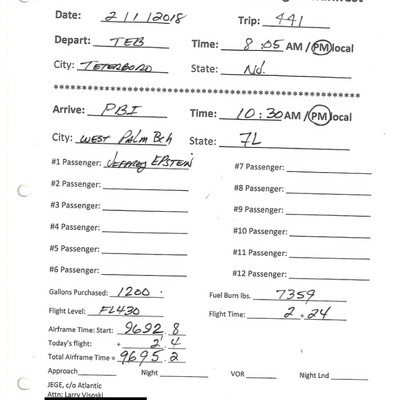 Date: 2/1/2018 Trip: 441
Depart: TEB Time: 8:05 AM / PM local
City: TETERBORO State: NJ.
************************************************
Arrive: PBI Time: 10:30 AM / PM local
City: WEST Palm Bch State: FL
#1 Passenger: JEFFREY EPSTEIN #7 Passenger:
#2 Passenger: #8 Passenger:
#3 Passenger: #9 Passenger:
#4 Passenger: #10 Passenger:
#5 Passenger: #11 Passenger:
#6 Passenger: #12 Passenger:
Gallons Purchased: 1200 Fuel Burn lbs. 7359
Flight Level: FL430 Flight Time: 2+24
Airframe Time: Start: 9692.8
Today's flight: + 2.4
Total Airframe Time = 9695.2
Approach Night VOR Night Lnd
JEGE, c/o Atlantic
Attn: Larry Visoski